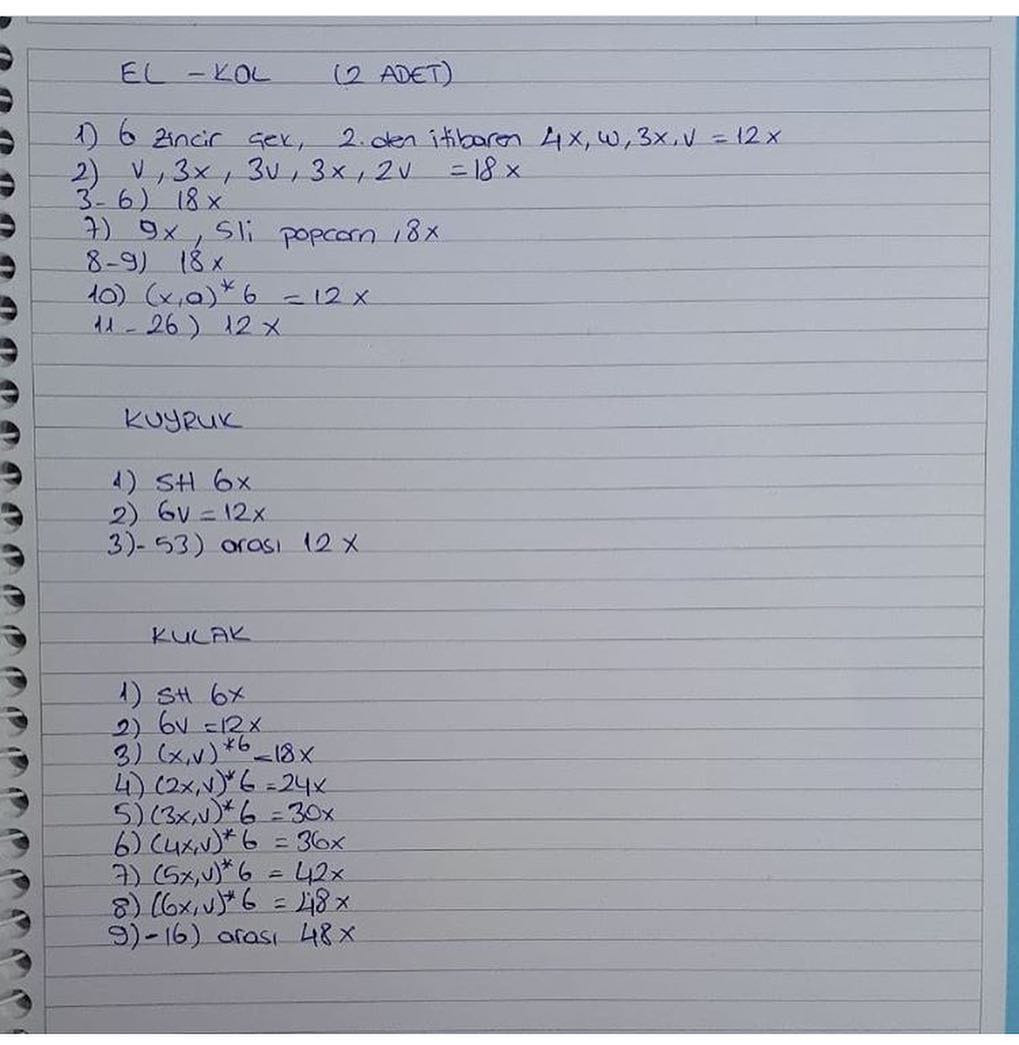 EL - KOL (2 ADET)
1) 6 zincir çek, 2. den itibaren 4x, w, 3x, v = 12x
2) v, 3x, 3v, 3x, 2v = 18x
3-6) 18x
7) 9x, 5li popcorn, 8x
8-9) 18x
10) (x,a)*6 = 12x
11-26) 12x
KUYRUK
1) SH 6x
2) 6v = 12x
3)-53) arası 12x
KULAK
1) SH 6x
2) 6v = 12x
3) (x,v)*6 = 18x
4) (2x,v)*6 = 24x
5) (3x,v)*6 = 30x
6) (4x,v)*6 = 36x
7) (5x,v)*6 = 42x
8) (6x,v)*6 = 48x
9)-16) arası 48x